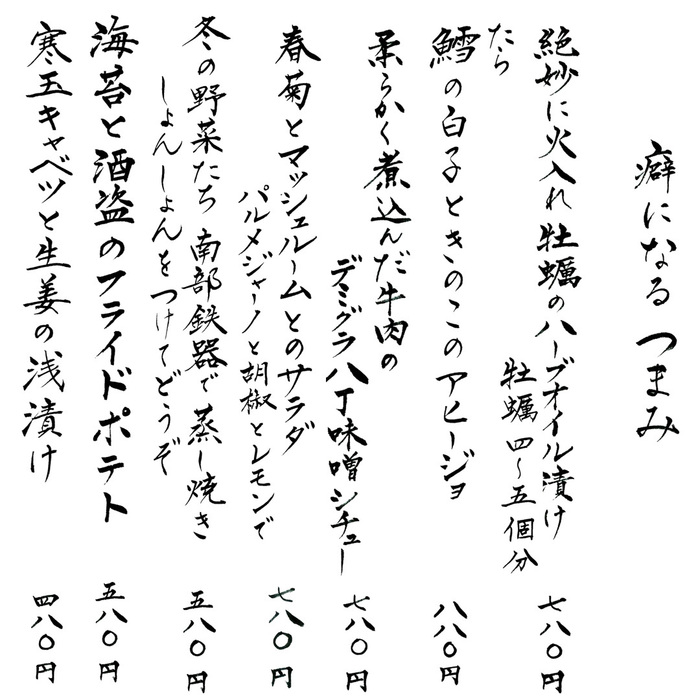 癖になる つまみ
絶妙に火入れ 牡蠣のハーブオイル漬け
牡蠣 四〜五個分
七八〇円
たら
鱈の白子ときのこのアヒージョ
八八〇円
柔らかく煮込んだ牛肉の
デミグラ八丁味噌シチュー
七八〇円
春菊とマッシュルームとのサラダ
パルメジャーノと胡椒とレモンで
七八〇円
冬の野菜たち 南部鉄器で蒸し焼き
しょんしょんをつけてどうぞ
五八〇円
海苔と酒盗のフライドポテト
五八〇円
寒玉キャベツと生姜の浅漬け
四八〇円